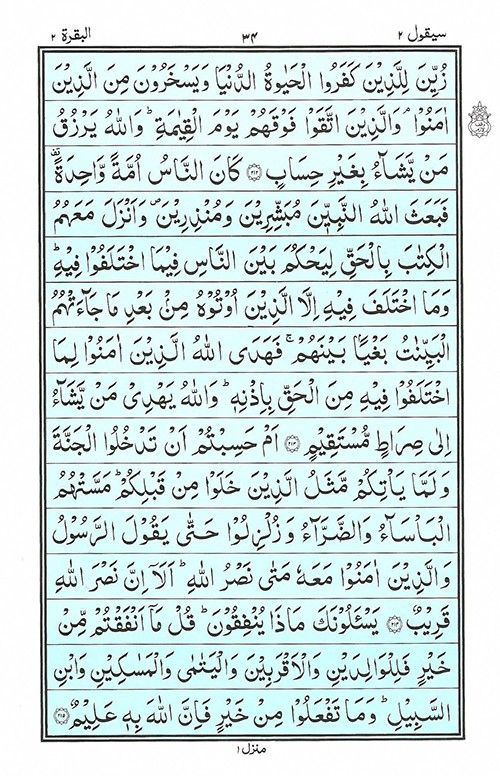 سيقول ٢ ٣۴ البقرة ٢
زُيِّنَ لِلَّذِيْنَ كَفَرُوا الْحَيٰوةُ الدُّنْيَا وَيَسْخَرُوْنَ مِنَ الَّذِيْنَ
اٰمَنُوْا ۘ وَالَّذِيْنَ اتَّقَوْا فَوْقَهُمْ يَوْمَ الْقِيٰمَةِ ؕ وَاللّٰهُ يَرْزُقُ
مَنْ يَّشَآءُ بِغَيْرِ حِسَابٍ ﴿٢١٢﴾ كَانَ النَّاسُ اُمَّةً وَّاحِدَةً ۟
فَبَعَثَ اللّٰهُ النَّبِيّٖنَ مُبَشِّرِيْنَ وَمُنْذِرِيْنَ ۪ وَاَنْزَلَ مَعَهُمُ
الْكِتٰبَ بِالْحَقِّ لِيَحْكُمَ بَيْنَ النَّاسِ فِيْمَا اخْتَلَفُوْا فِيْهِ ؕ
وَمَا اخْتَلَفَ فِيْهِ اِلَّا الَّذِيْنَ اُوْتُوْهُ مِنْۢ بَعْدِ مَا جَآءَتْهُمُ
الْبَيِّنٰتُ بَغْيًۢا بَيْنَهُمْ ۚ فَهَدَى اللّٰهُ الَّذِيْنَ اٰمَنُوْا لِمَا
اخْتَلَفُوْا فِيْهِ مِنَ الْحَقِّ بِاِذْنِهٖ ؕ وَاللّٰهُ يَهْدِيْ مَنْ يَّشَآءُ
اِلٰى صِرَاطٍ مُّسْتَقِيْمٍ ﴿٢١٣﴾ اَمْ حَسِبْتُمْ اَنْ تَدْخُلُوا الْجَنَّةَ
وَلَمَّا يَاْتِكُمْ مَّثَلُ الَّذِيْنَ خَلَوْا مِنْ قَبْلِكُمْ ؕ مَسَّتْهُمُ
الْبَاْسَآءُ وَالضَّرَّآءُ وَزُلْزِلُوْا حَتّٰى يَقُوْلَ الرَّسُوْلُ
وَالَّذِيْنَ اٰمَنُوْا مَعَهٗ مَتٰى نَصْرُ اللّٰهِ ؕ اَلَاۤ اِنَّ نَصْرَ اللّٰهِ
قَرِيْبٌ ﴿٢١٤﴾ يَسْـَٔلُوْنَكَ مَاذَا يُنْفِقُوْنَ ؕ قُلْ مَاۤ اَنْفَقْتُمْ مِّنْ
خَيْرٍ فَلِلْوَالِدَيْنِ وَالْاَقْرَبِيْنَ وَالْيَتٰمٰى وَالْمَسٰكِيْنِ وَابْنِ
السَّبِيْلِ ؕ وَمَا تَفْعَلُوْا مِنْ خَيْرٍ فَاِنَّ اللّٰهَ بِهٖ عَلِيْمٌ ﴿٢١٥﴾
منزل ١